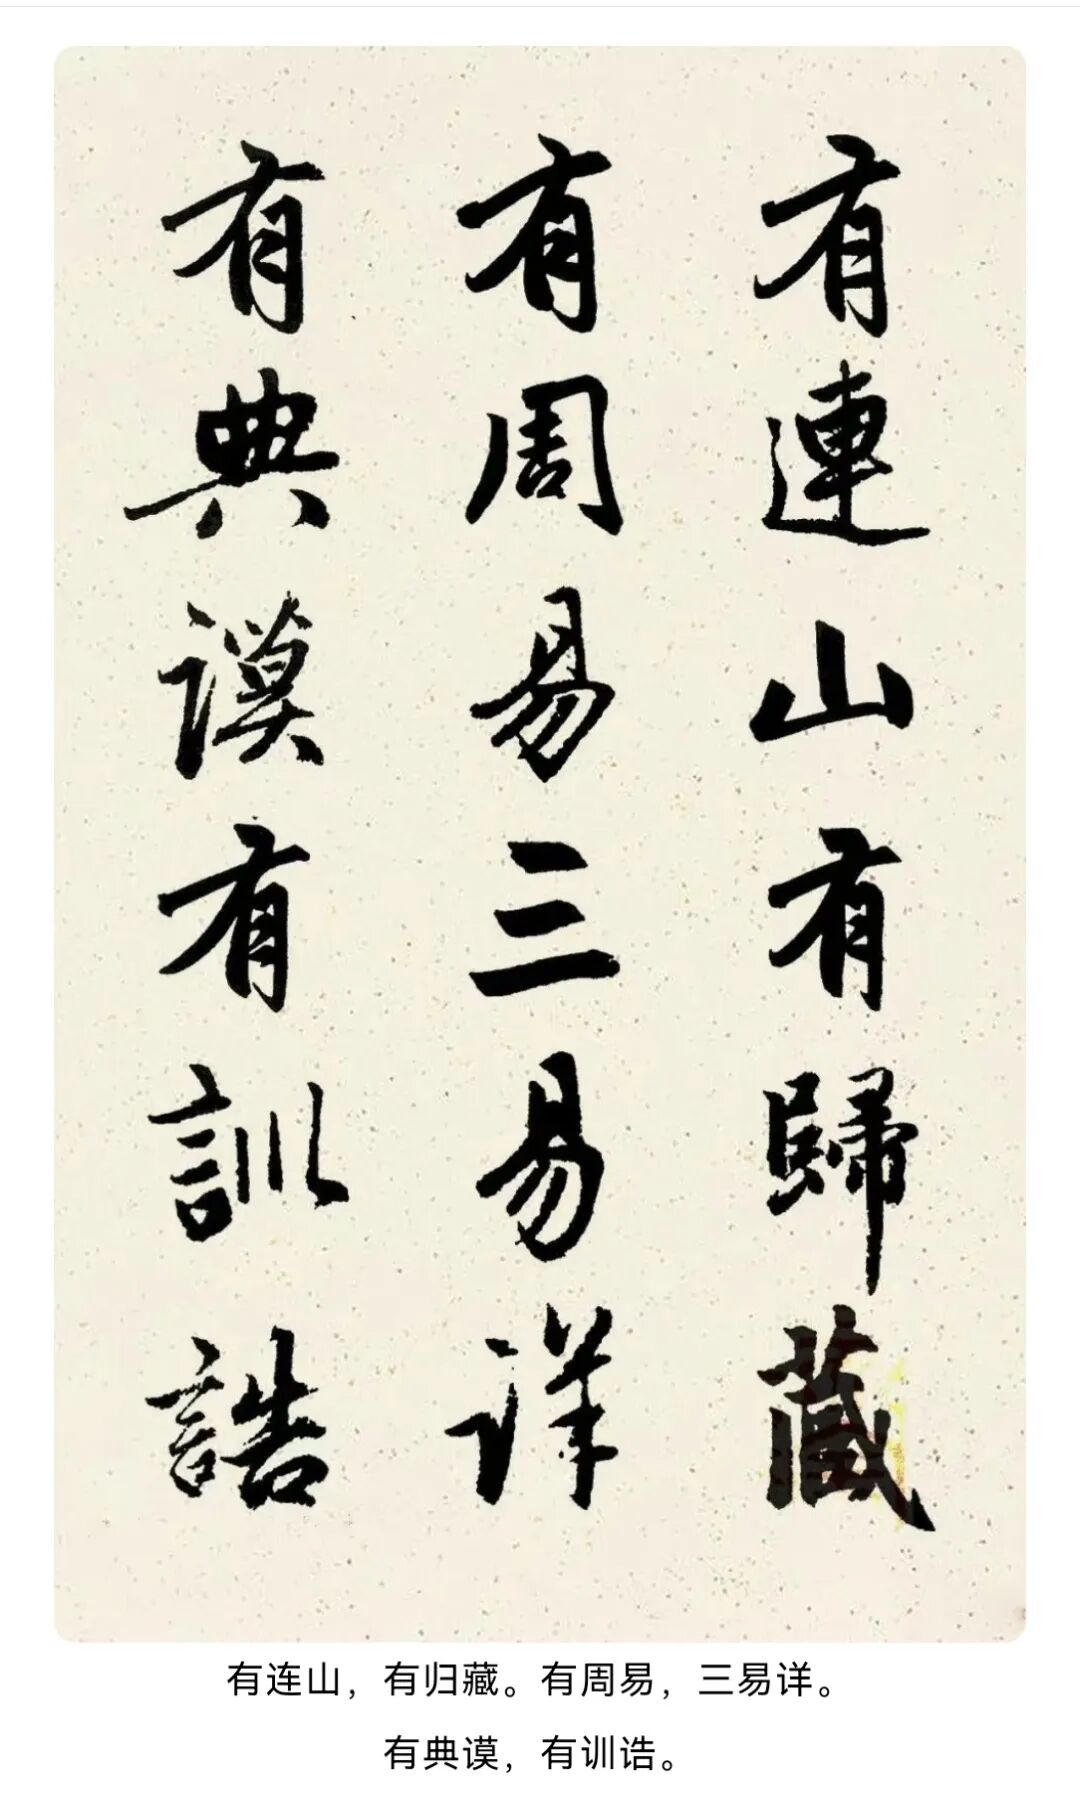 有連山有歸藏
有周易三易详
有典謨有訓誥
有连山，有归藏。有周易，三易详。
有典谟，有训诰。